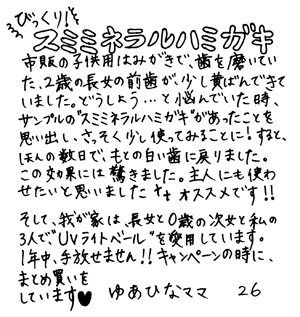 びっくり!!
スミミネラルハミガキ
市販の子供用はみがきで、歯を磨いてい
た、2歳の長女の前歯が、少し黄ばんできて
いました。どうしよう…と悩んでいた時、
サンプルの"スミミネラルハミガキ"があったことを
思い出し、さっそく少し使ってみることに!すると、
ほんの数日で、もとの白い歯に戻りました。
この効果には驚きました。主人にも使わ
せたいと思いました++オススメです!!
そして、我が家は、長女と0歳の次女と私の
3人で、"UVライトベール"を愛用しています。
1年中、手放せません!!キャンペーンの時に、
まとめ買いを
しています♥ ゆあひなママ 26